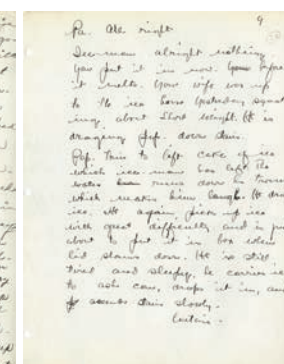 9
Pa. All right
Ice-man alright nothing
you put it in now. before
it melts. Your wife was up
to the ice house yesterday squawk
ing about short weight. He is
dragging Pop. down stairs.
Pop. tries to lift cake of ice
which ice-man has left. The
water runs down his trousers
which makes him laugh. He drops
ice. He again, picks up ice
with great difficulty and is just
about to put it in box when
lid slams down. He is still
tired and sleepy, he carries ice
to ash can, drops it in, and
ascends stairs slowly.
Curtain.